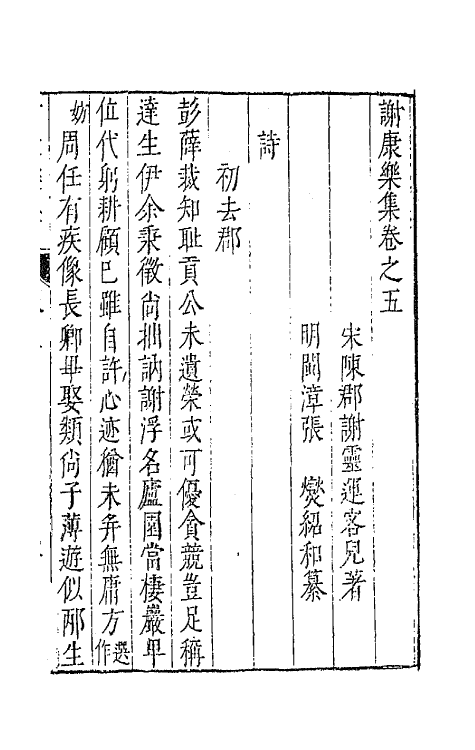 謝康樂集卷之五
宋陳郡謝靈運客兒著
明閩漳張　燮紹和纂
詩
初去郡
彭薛裁知恥貢公未遺榮或可優貪競豈足稱
達生伊余秉微尚拙訥謝浮名廬園當棲巖卑
位代躬耕顧已雖自許心迹猶未并無庸方選作
妨周任有疾像長卿畢娶類尚子薄遊似邴生